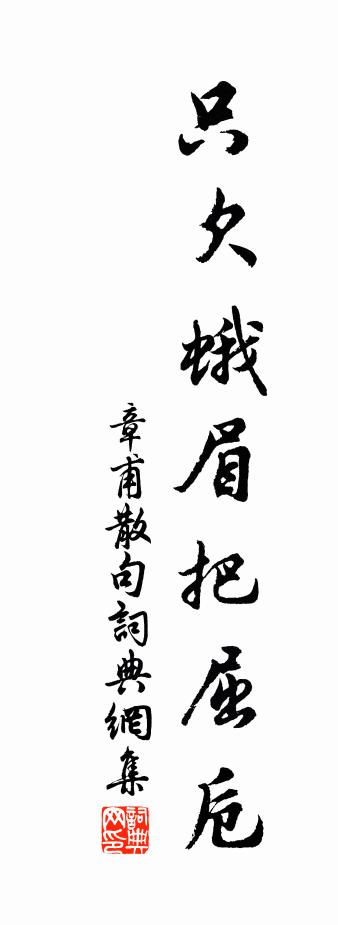 只欠蛾眉把屈卮
章甫散句詞典網集
詞典网印